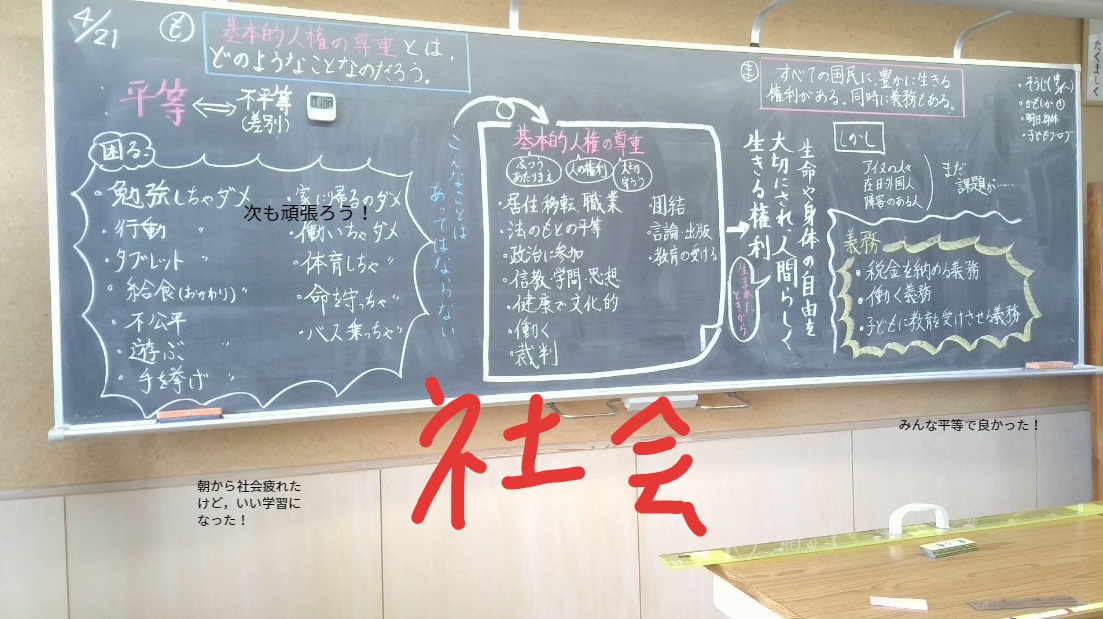 4/21
も
基本的人権の尊重とは、
どのようなことなのだろう。
平等 ⟺ 不平等
(差別)
困る
・勉強しちゃダメ
・行動 〃
・タブレット 〃
・給食(おかわり)〃
・不公平
・遊ぶ 〃
・手を挙げ 〃
・家に帰るのダメ
・働いちゃダメ
・体育しちゃ〃
・命を守っちゃ〃
・バス乗っちゃ〃
次も頑張ろう！
こんなことは
あってはならない
基本的人権の尊重
ふつう
あたりまえ
人の権利
大切
守ろう
・居住・移転、職業
・法のもとの平等
・政治に参加
・信教・学問・思想
・健康で文化的
・働く
・裁判
・団結
・言論・出版
・教育の受ける
→
生命や身体の自由を
大切にされ、人間らしく
生きる権利
生まれた
ときから
ま
すべての国民に豊かに生きる
権利がある。同時に義務もある。
しかし
アイヌの人々
在日外国人
障害のある人
まだ
課題が……
義務
・税金を納める義務
・働く義務
・子どもに教育を受けさせる義務
・明日身体
たくましく
社会
みんな平等で良かった！
朝から社会疲れた
けど，いい学習に
なった！